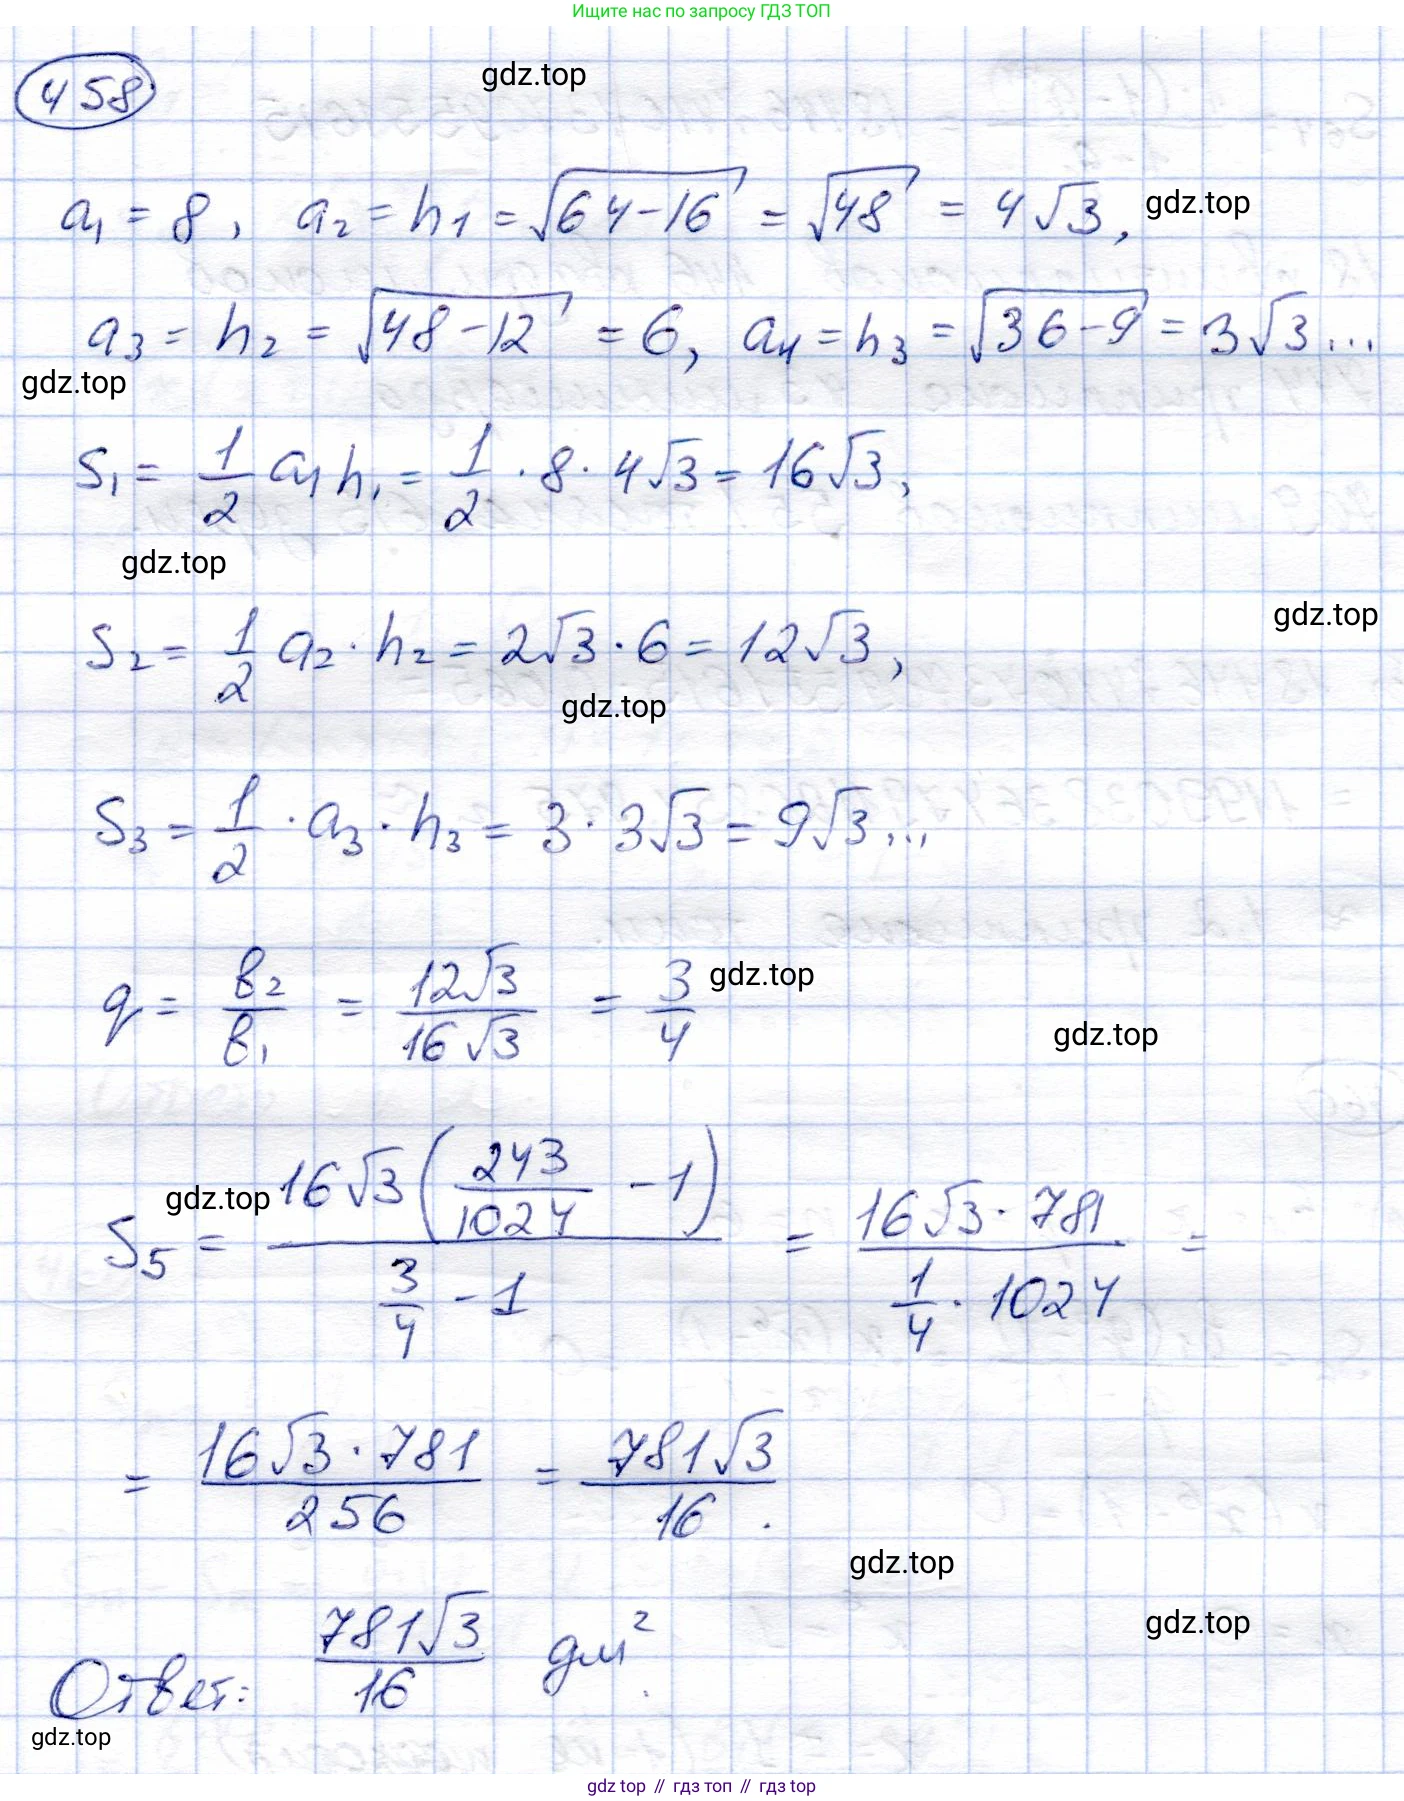 Ищите нас по запросу ГДЗ ТОП
458
gdz.top
a₁ = 8, a₂ = h₁ = √(64-16) = √48 = 4√3,
gdz.top
a₃ = h₂ = √(48-12) = 6, a₄ = h₃ = √(36-9) = 3√3...
gdz.top
S₁ = 1/2 a₁h₁ = 1/2 · 8 · 4√3 = 16√3,
gdz.top
gdz.top
S₂ = 1/2 a₂ · h₂ = 2√3 · 6 = 12√3,
gdz.top
S₃ = 1/2 · a₃ · h₃ = 3 · 3√3 = 9√3...
q = b₂/b₁ = 12√3/16√3 = 3/4
gdz.top
gdz.top
gdz.top
S₅ = 16√3(243/1024 - 1)/(3/4 - 1) = 16√3 · 781/(1/4 · 1024) =
= 16√3 · 781/256 = 781√3/16.
gdz.top
gdz.top
Ответ: 781√3/16 дм².
gdz.top
gdz top // гдз топ // гдз top